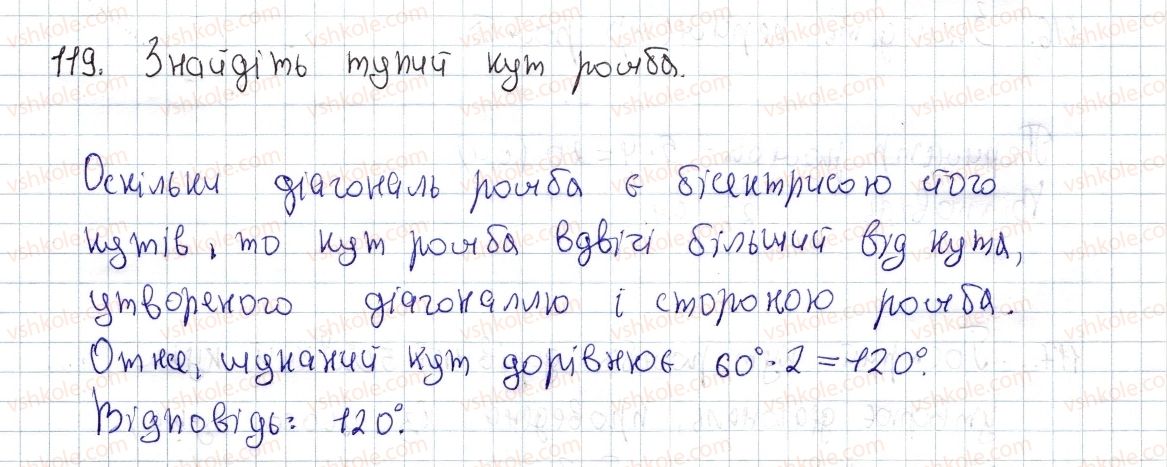 119. Знайдіть тупий кут ромба.
Оскільки діагональ ромба є бісектрисою його
кутів, то кут ромба вдвічі більший від кута,
утвореного діагоналлю і стороною ромба.
Отже, шуканий кут дорівнює 60° · 2 = 120°.
Відповідь: 120°.